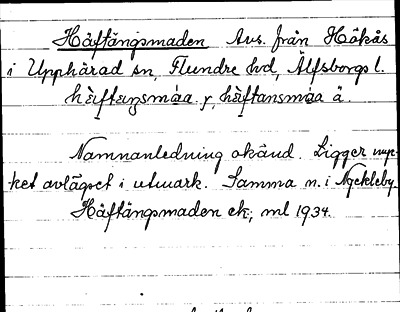 Håftångsmaden Avs. från Håkås
i Upphärad sn, Flundre hd, Älfsborgs l.
hå̀ftaŋsmáa y, hå̀ftansmåa ä.
Namnanledning okänd. Ligger myc-
ket avlägset i utmark. Samma n. i Nyckleby.
Håftångsmaden ek; ml 1934.